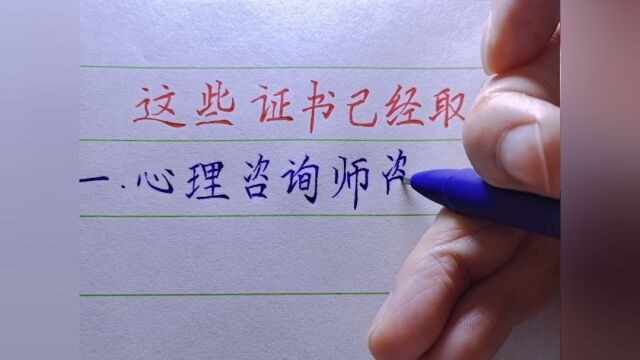 这些证书已经取
一.心理咨询师咨